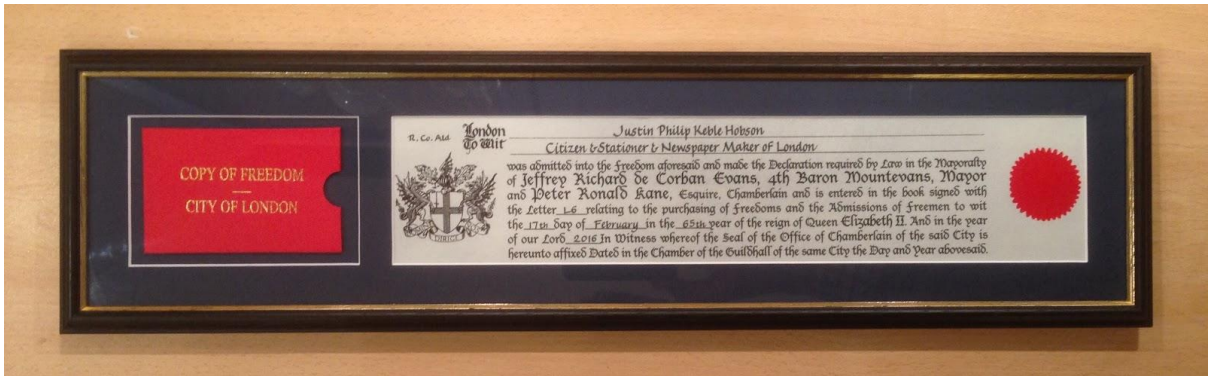 COPY OF FREEDOM
CITY OF LONDON
R. Co. Ald
London
To Wit
Justin Philip Keble Hobson
Citizen & Stationer & Newspaper Maker of London
was admitted into the Freedom aforesaid and made the Declaration required by Law in the Mayoralty
of Jeffrey Richard de Corban Evans, 4th Baron Mountevans, Mayor
and Peter Ronald Kane, Esquire, Chamberlain and is entered in the book signed with
the Letter L6 relating to the purchasing of Freedoms and the Admissions of Freemen to wit
the 17th day of February in the 65th year of the reign of Queen Elizabeth II. And in the year
of our Lord 2016 In Witness whereof the Seal of the Office of Chamberlain of the said City is
hereunto affixed Dated in the Chamber of the Guildhall of the same City the Day and Year abovesaid.